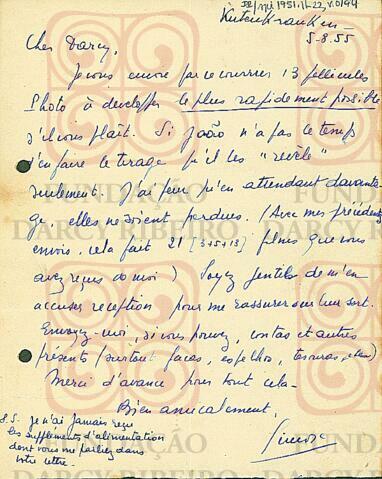 Kuben Kranken
5-8-55
Cher Darcy,
Je vous envoie par ce courrier 13 pellicules
Photo à developper le plus rapidement possible
s'il vous plaît. Si João n'a pas le temps
d'en faire le tirage qu'il les "revèle"
seulement. J'ai peur qu'en attendant davanta-
ge elles ne soient perdues. (Avec mes précédents
envois, cela fait 21 [3+5+13] films que vous
avez reçus de moi) Soyez gentils de m'en
accuser reception pour me rassurer sur leur sort.
Envoyez-moi, si vous pouvez, contas et autres
présents (surtout facas, espelhos, tesouras, etc.)
Merci d'avance pour tout cela-
Bien amicalement,
Simone
P.S. Je n'ai jamais reçu
les supplements d'alimentation
dont vous me parliez dans
votre lettre.
FUNDAÇÃO
DARCY RIBEIRO
FUNDAÇÃO
DARCY RIBEIRO